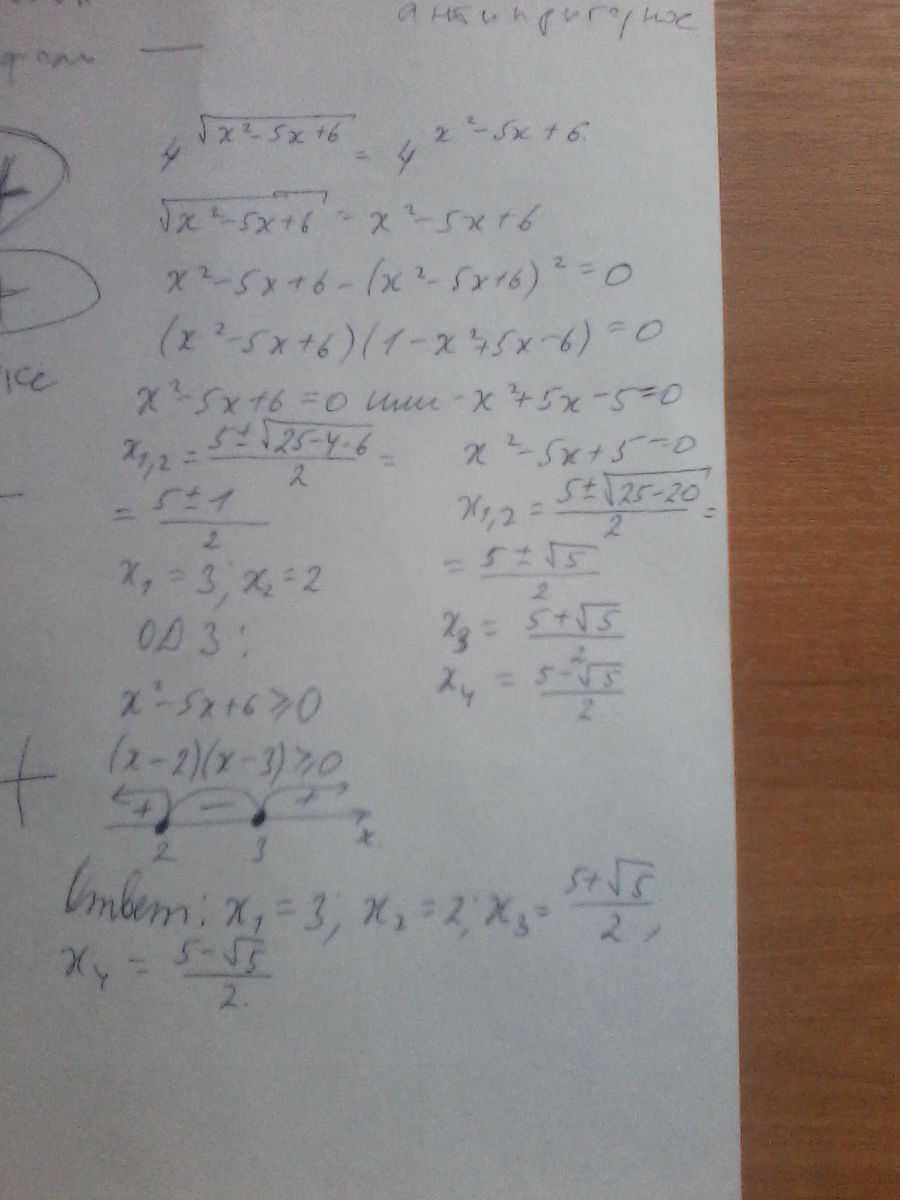 4^{\sqrt{x²-5x+6}} = 4^{x²-5x+6}
\sqrt{x²-5x+6} = x²-5x+6
x²-5x+6-(x²-5x+6)²=0
(x²-5x+6)(1-x²+5x-6)=0
x²-5x+6=0 или -x²+5x-5=0
x_{1,2} = \frac{5±\sqrt{25-4·6}}{2} =
= \frac{5±1}{2}
x₁=3; x₂=2
ОДЗ:
x²-5x+6⩾0
(x-2)(x-3)⩾0
+ − +
2 3 x
x²-5x+5=0
x_{1,2} = \frac{5±\sqrt{25-20}}{2} =
= \frac{5±\sqrt{5}}{2}
x₃ = \frac{5+\sqrt{5}}{2}
x₄ = \frac{5-\sqrt{5}}{2}
Ответ: x₁=3; x₂=2; x₃=\frac{5+\sqrt{5}}{2},
x₄ = \frac{5-\sqrt{5}}{2}.